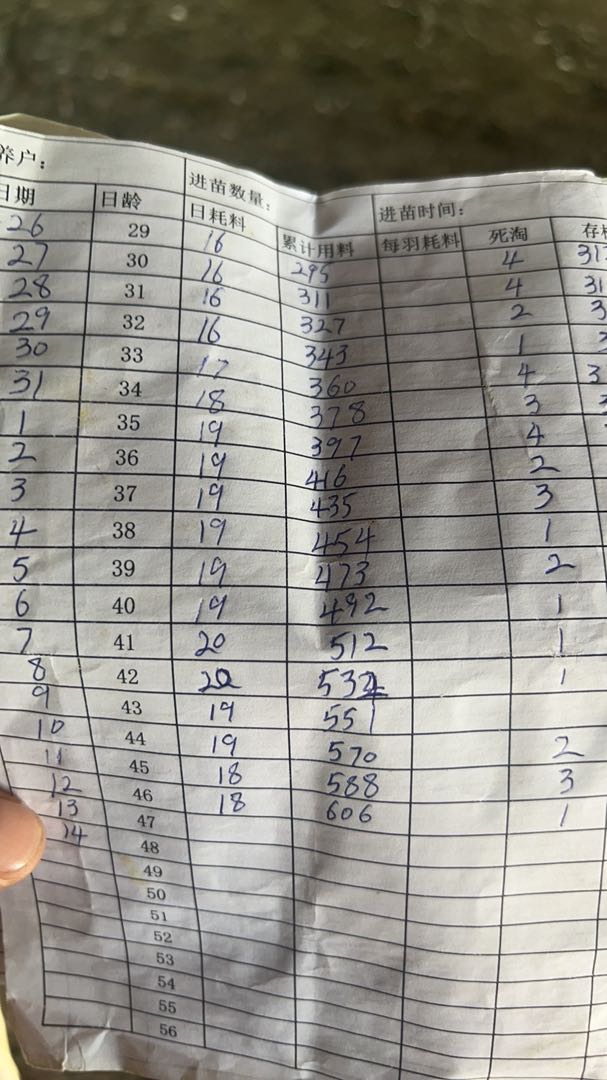 养户： 进苗数量： 进苗时间：
日期 日龄 日耗料 累计用料 每羽耗料 死淘 存
26 29 16 295 4 31
27 30 16 311 4 31
28 31 16 327 2 3
29 32 16 343 1 3
30 33 17 360 4 3
31 34 18 378 3 3
1 35 19 397 4
2 36 19 416 2
3 37 19 435 3
4 38 19 454 1
5 39 19 473 2
6 40 19 492 1
7 41 20 512 1
8 42 20 532 1
9 43 19 551
10 44 19 570 2
11 45 18 588 3
12 46 18 606 1
13 47
14 48
49
50
51
52
53
54
55
56